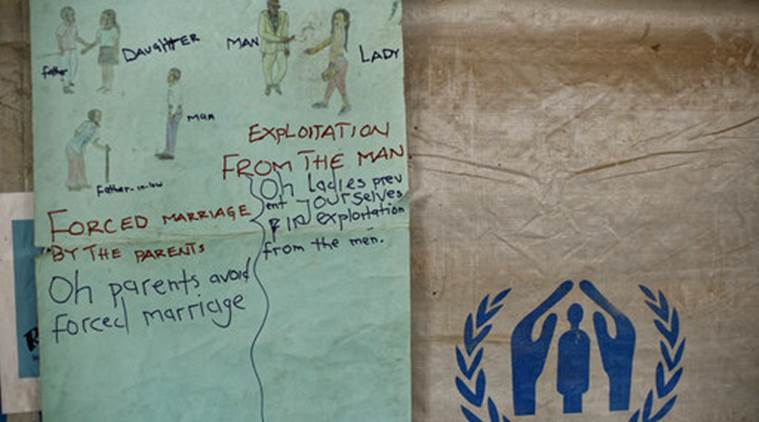 Father
DAUGHTER
MAN
LADY
man
Father-in-low
FORCED MARRIAGE
BY THE PARENTS
Oh parents avoid
forced marriage
EXPLOITATION
FROM THE MAN
Oh ladies prev
ent yourselves
exploitation
from the men.
R